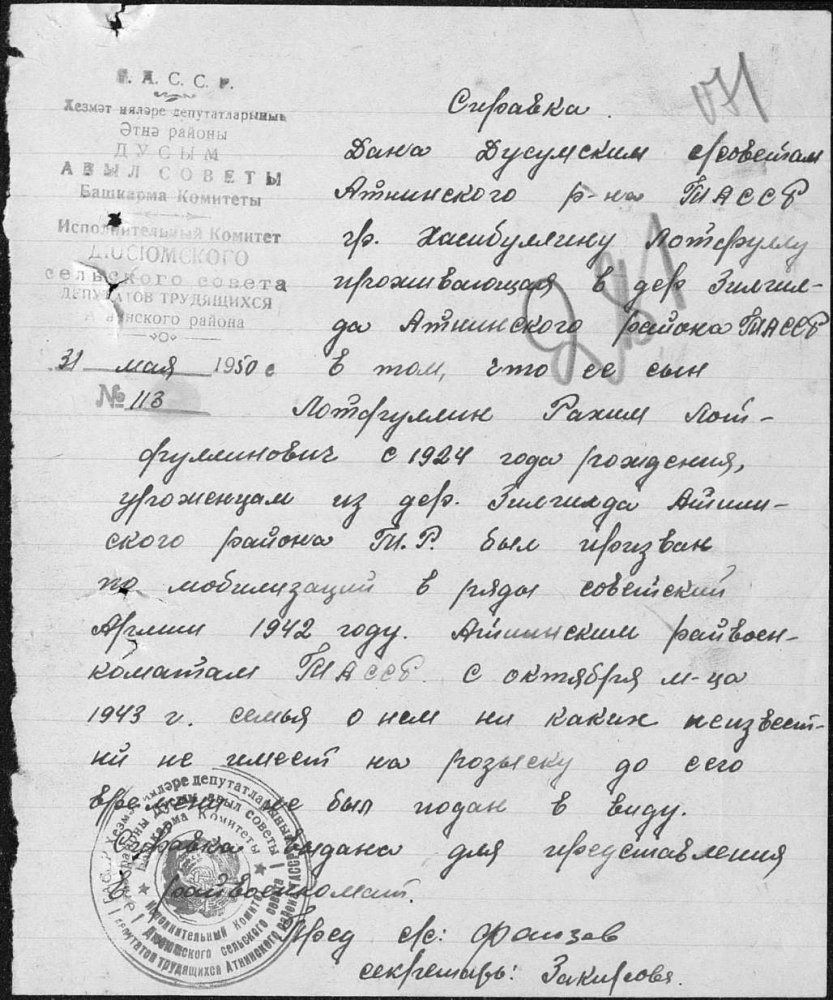 Т. А. С. С. Р.
Хезмәт ияләре депутатларының
Әтнә районы
ДУСЫМ
АВЫЛ СОВЕТЫ
Башкарма Комитеты
Исполнительный Комитет
Д.ОСЮМСКОГО
сельского совета
ДЕПУТАТОВ ТРУДЯЩИХСЯ
Атнинского района
31 мая 1950 г
№ 113
Справка.
Дана Дусумским с/советам
Атнинского р-на ТАССР
гр. Хасибуллину Лотфуллу
проживающая в дер Зилгил-
да Атнинского района ТАССР
в том, что ее сын
Лотфуллин Рахим Лот-
фуллинович с 1924 года рождения,
уроженцам из дер. Зилгилда Атнин-
ского района Т.Р. был призван
по мобилизаций в ряды советский
Армии 1942 году. Атнинским райвоен-
коматам ТАССР. с октября м-ца
1943 г. семья о нем ни каких неизвест-
ий не имеет на розыску до сего
времени не был подан в виду.
Справка выдана для представления
в райвоенкомат.
Пред с/с: Фаизов
секретарь:
Хезмәт ияләре депутатларының
Дусым авыл советы
Башкарма Комитеты
Исполнительный Комитет
сельского совета
депутатов трудящихся Атнинского района ТАССР